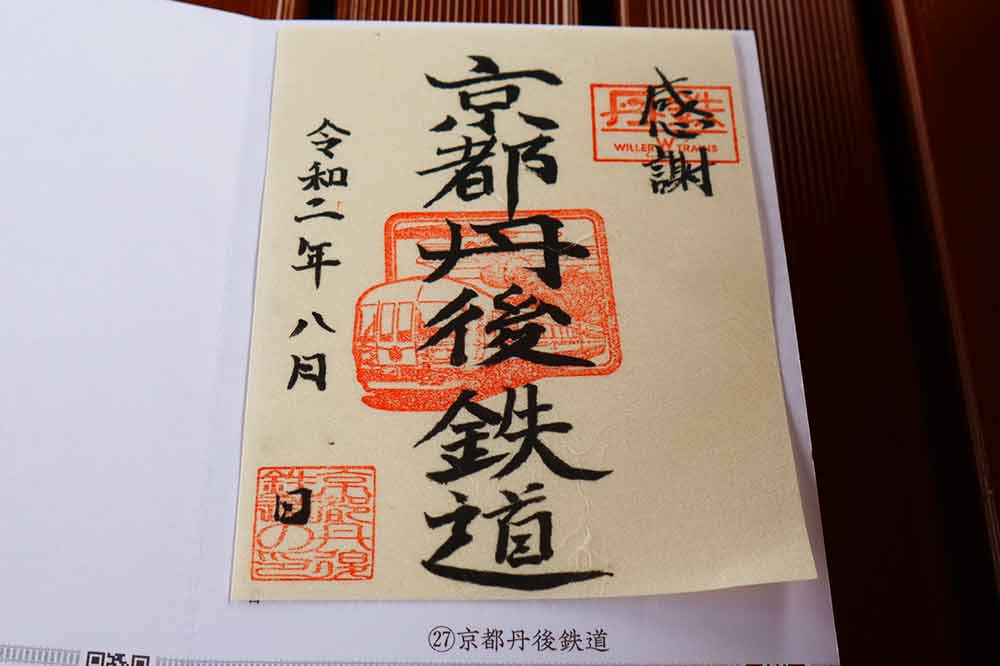 感謝
丹鉄
WILLER TRAINS
京都丹後鉄道
令和二年 八月
日
㉗京都丹後鉄道